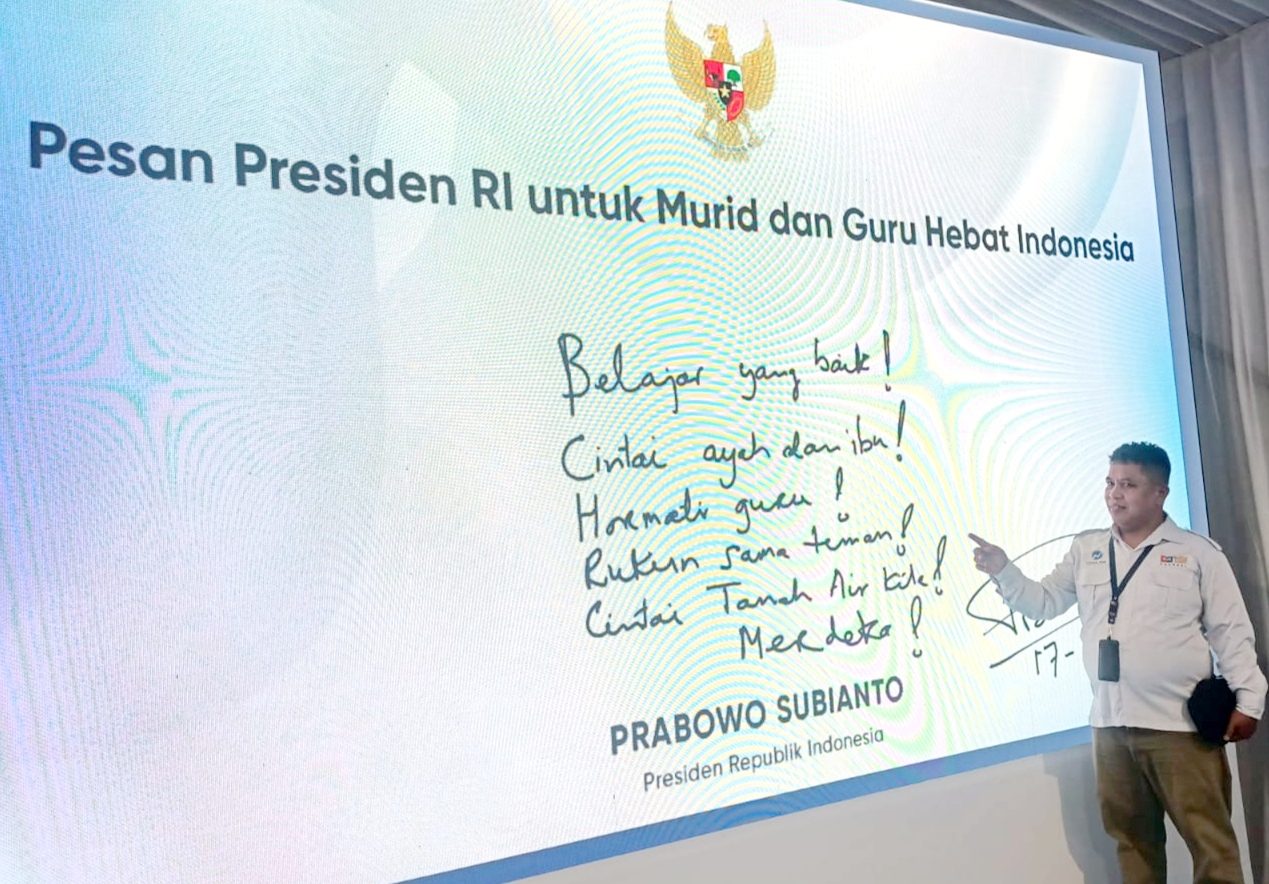 Pesan Presiden RI untuk Murid dan Guru Hebat Indonesia
Belajar yang baik!
Cintai ayah dan ibu!
Hormati guru!
Rukun sama teman!
Cintai Tanah Air kita!
Merdeka!
17-
PRABOWO SUBIANTO
Presiden Republik Indonesia